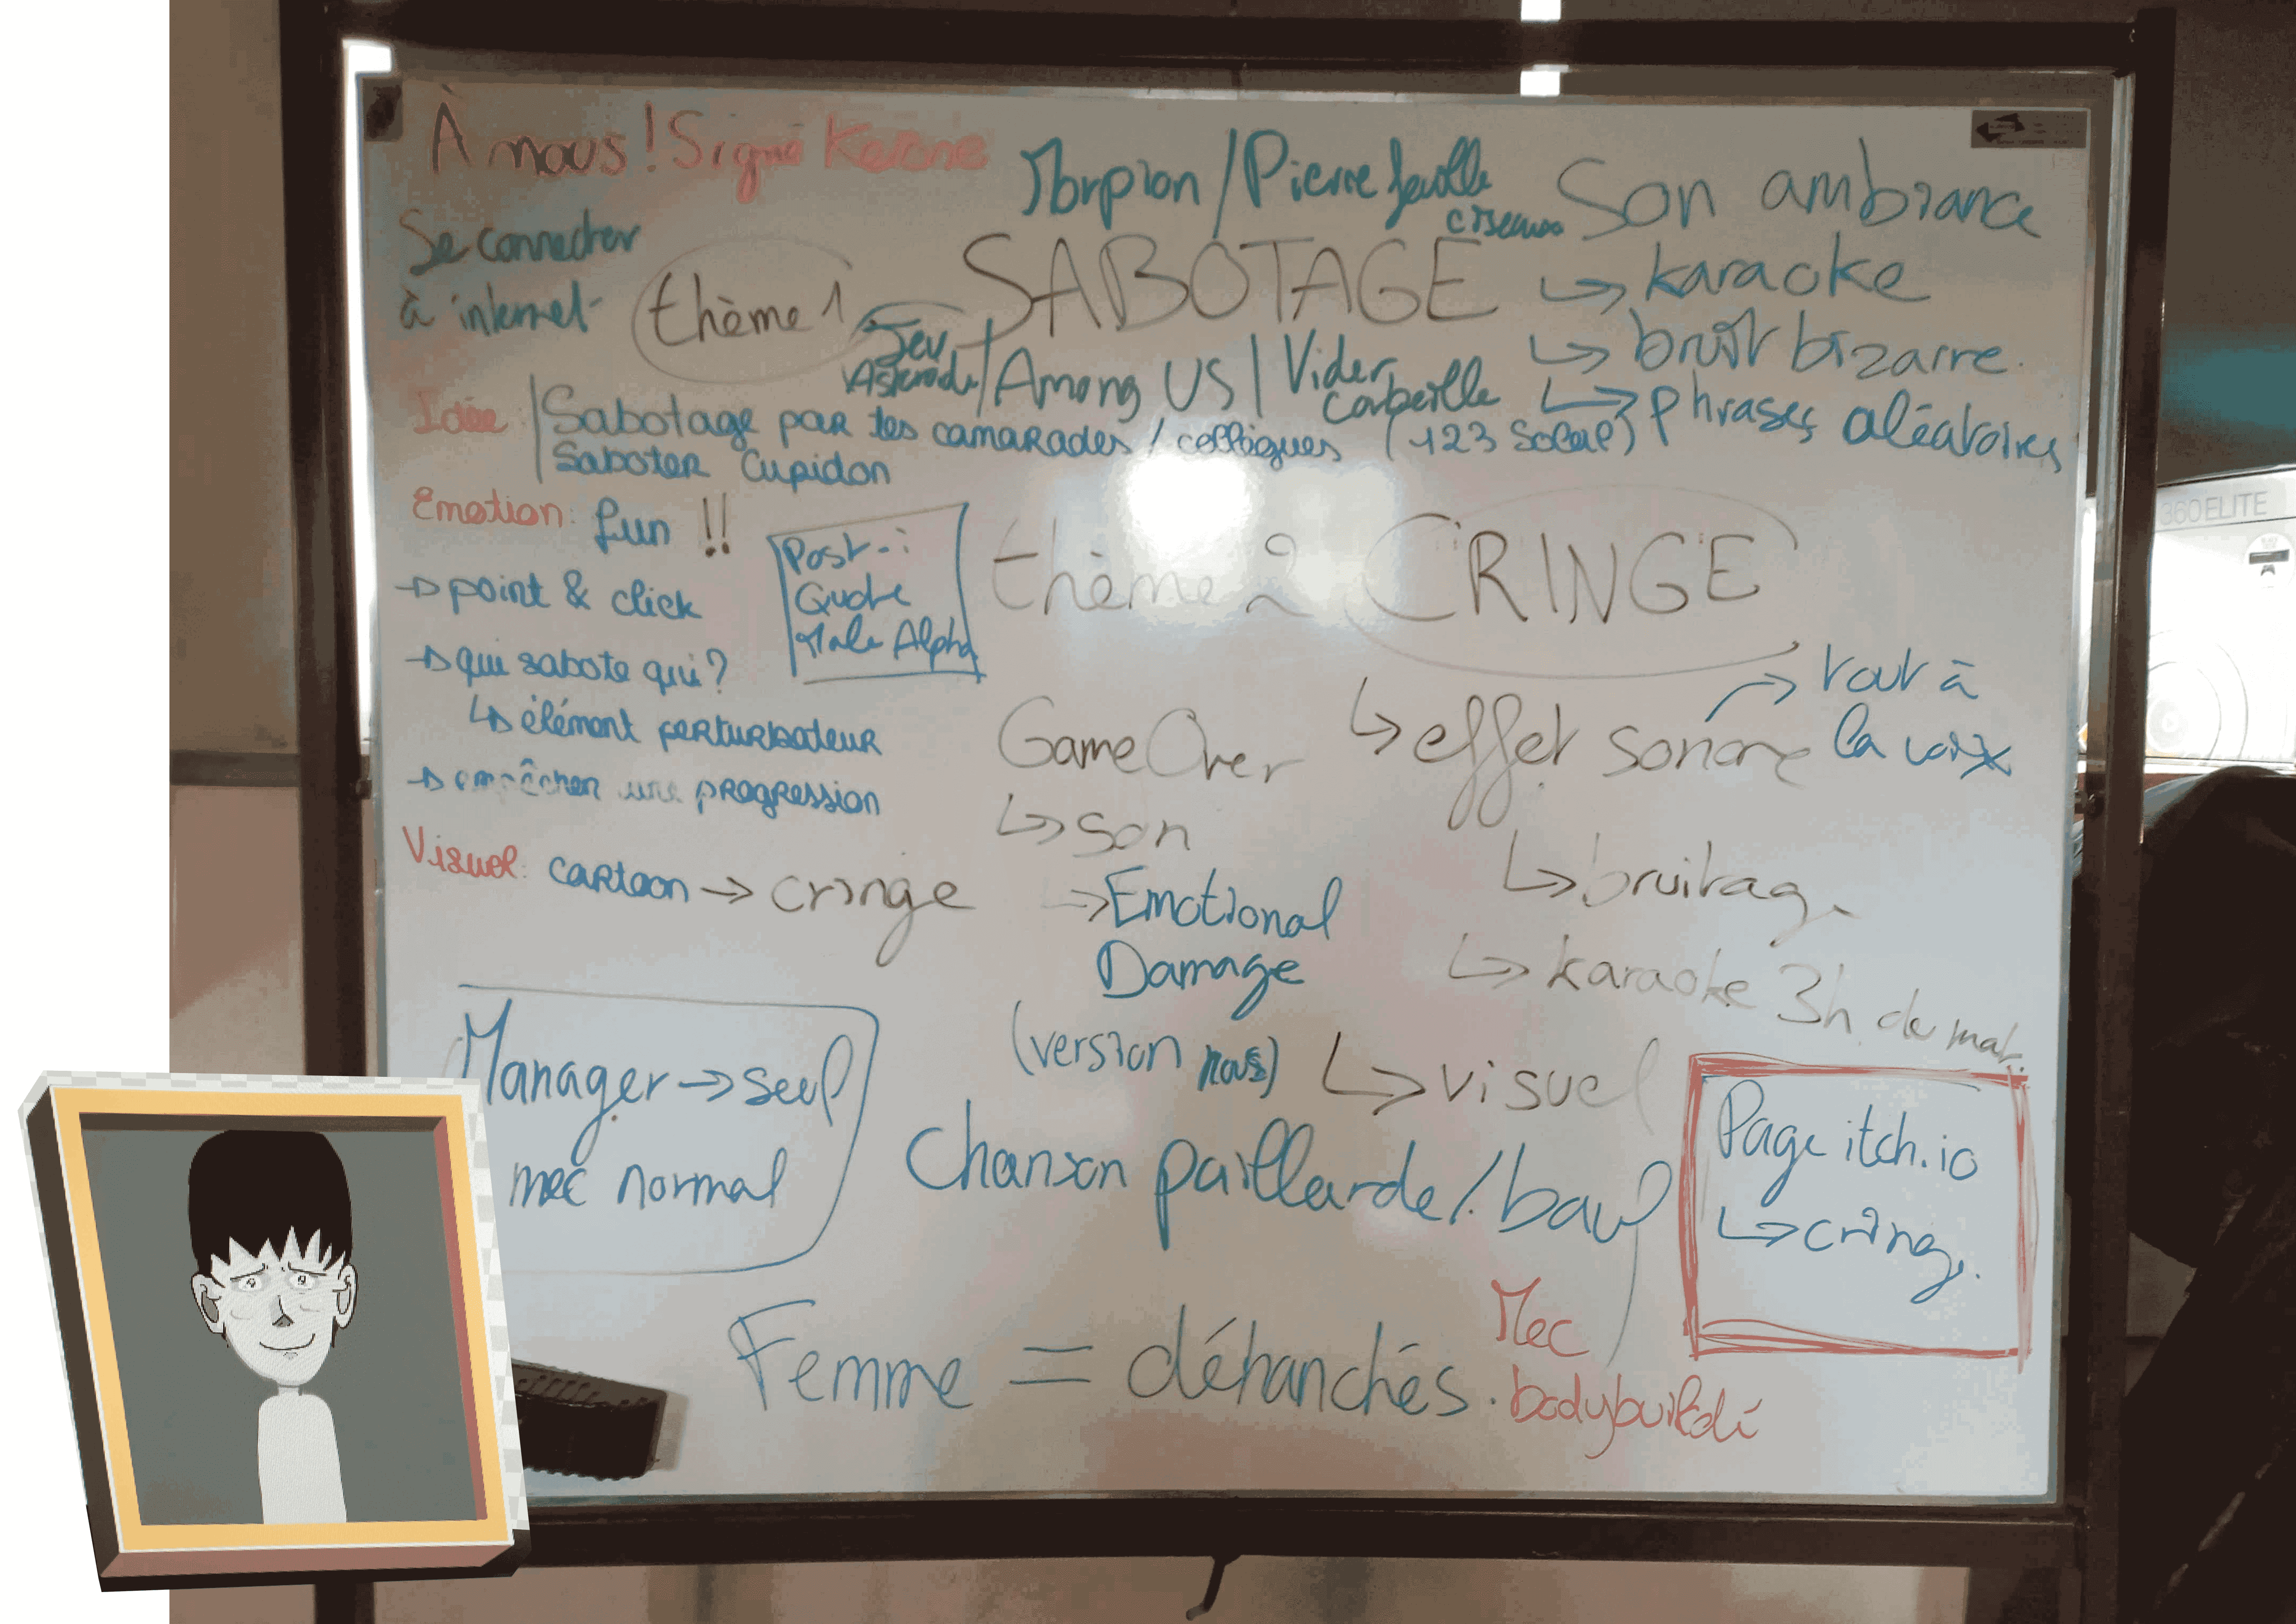 À nous ! Signé
Morpion / Pierre feuille
ciseaux
Son ambiance
↳ karaoke
↳ bruit bizarre.
↳ Phrases aléatoires
Se connecter
à internet
thème 1
SABOTAGE
Jeu
/ Among US / Vider
corbeille
Idée
Sabotage par tes camarades / collègues (123 Soleil)
Saboter Cupidon
Emotion: fun !!
→ point & click
→ qui sabote qui ?
↳ élément perturbateur
→ empêcher une progression
Post-i
Quote
Male Alpha
thème 2 CRINGE
↳ effet sonore
→ tout à
la voix
↳ bruitage
↳ karaoke 3h du mat.
↳ visuel
Game Over
↳ son
→ Emotional
Damage
(version nous)
Visuel: cartoon → cringe
Manager → seul
mec normal
Chanson paillarde / bauf
Page itch.io
↳ cringe.
Femme = déhanchés.
Mec
bodybuildé
360 ELITE